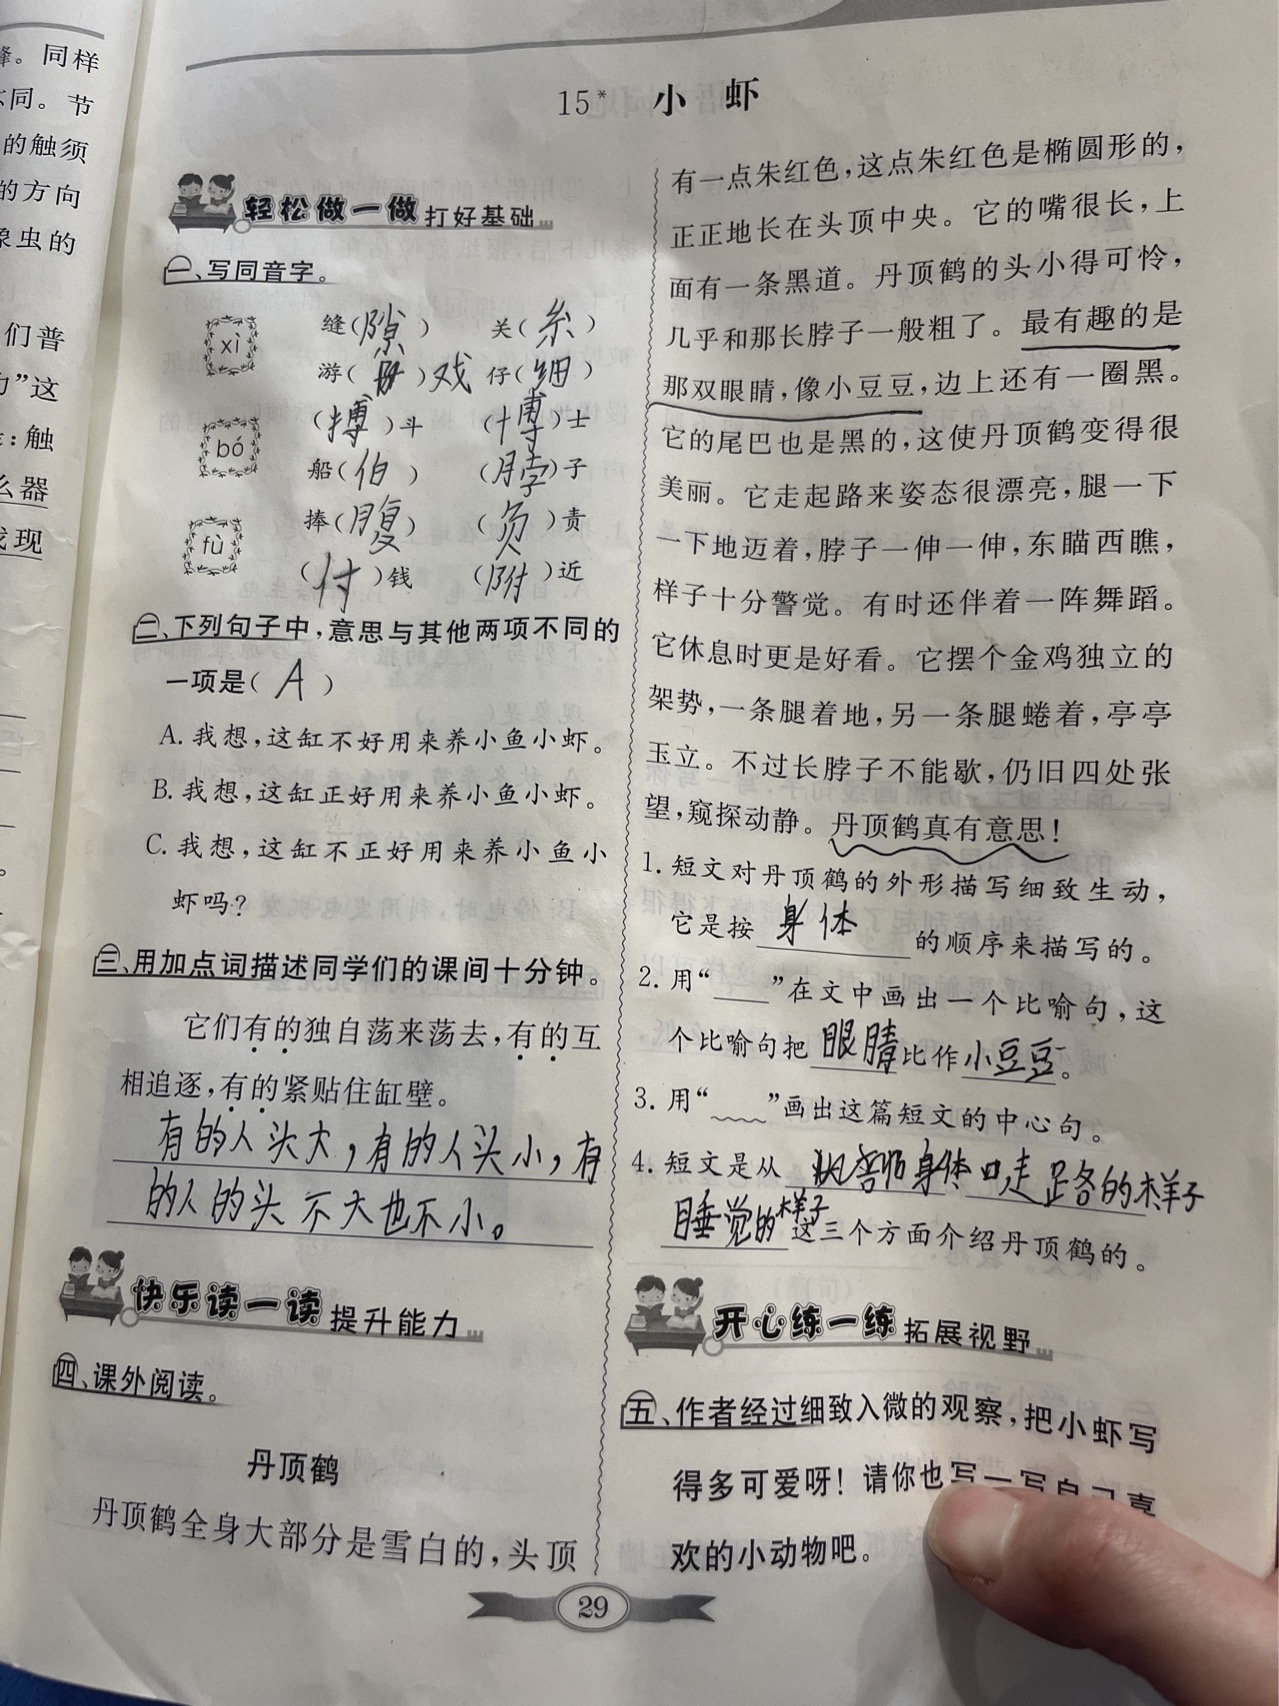 锋。同样
不同。节
的触须
的方向
象虫的
们普
”这
：触
么器
找现
15* 小虾
轻松做一做 打好基础
一、写同音字。
xì
缝(隙) 关(系)
游( )戏 仔(细)
bó
(搏)斗 (博)士
船(伯) (脖)子
fù
捧(腹) (负)责
(付)钱 (附)近
二、下列句子中，意思与其他两项不同的
一项是( A )
A. 我想，这缸不好用来养小鱼小虾。
B. 我想，这缸正好用来养小鱼小虾。
C. 我想，这缸不正好用来养小鱼小
虾吗？
三、用加点词描述同学们的课间十分钟。
它们有的独自荡来荡去，有的互
相追逐，有的紧贴住缸壁。
有的人头大，有的人头小，有
的人的头不大也不小。
快乐读一读 提升能力
四、课外阅读。
丹顶鹤
丹顶鹤全身大部分是雪白的，头顶
有一点朱红色，这点朱红色是椭圆形的，
正正地长在头顶中央。它的嘴很长，上
面有一条黑道。丹顶鹤的头小得可怜，
几乎和那长脖子一般粗了。最有趣的是
那双眼睛，像小豆豆，边上还有一圈黑。
它的尾巴也是黑的，这使丹顶鹤变得很
美丽。它走起路来姿态很漂亮，腿一下
一下地迈着，脖子一伸一伸，东瞄西瞧，
样子十分警觉。有时还伴着一阵舞蹈。
它休息时更是好看。它摆个金鸡独立的
架势，一条腿着地，另一条腿蜷着，亭亭
玉立。不过长脖子不能歇，仍旧四处张
望，窥探动静。丹顶鹤真有意思！
1. 短文对丹顶鹤的外形描写细致生动，
它是按 身体 的顺序来描写的。
2. 用“___”在文中画出一个比喻句，这
个比喻句把 眼睛 比作 小豆豆。
3. 用“﹏﹏”画出这篇短文的中心句。
4. 短文是从 身体 走路的样子
睡觉的样子 这三个方面介绍丹顶鹤的。
开心练一练 拓展视野
五、作者经过细致入微的观察，把小虾写
得多可爱呀！请你也写一写自己喜
欢的小动物吧。
29